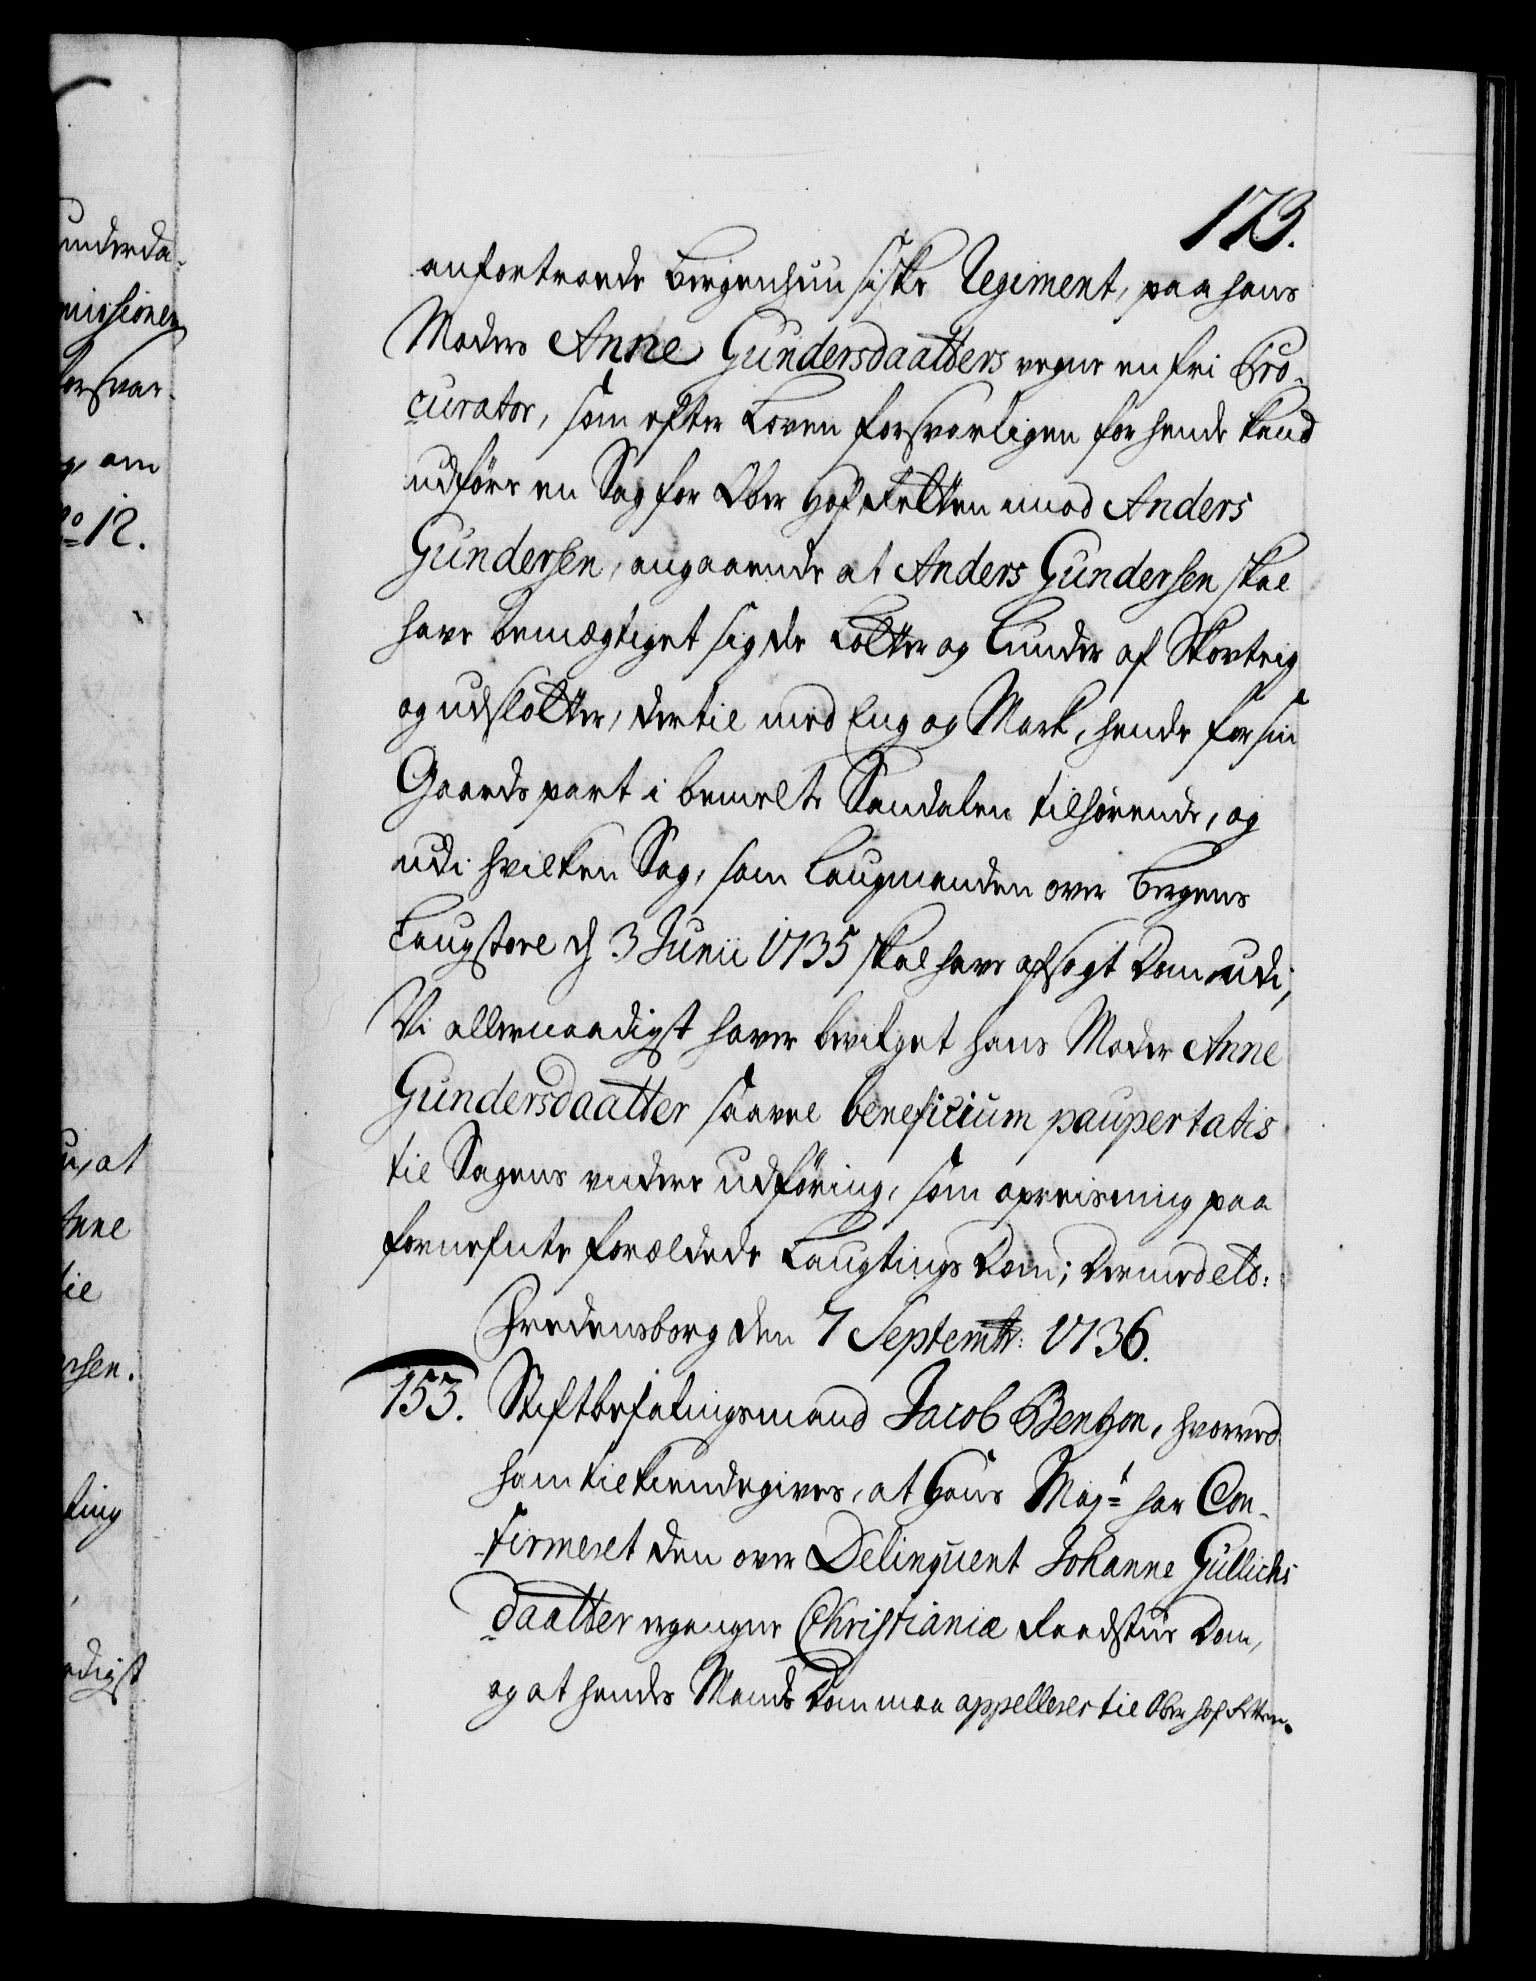 173.
anfortroede Bergenhuusiske Regiment, paa hans
Moders Anne Gundersdaatters vegne en fri Pro-
curator, som efter Loven forsvarligen for hende kand
udføre en Sag for Ober Hof Retten imod Anders
Gundersen, angaaende at Anders Gundersen skal
have bemægtiget sig de Lotter og Lunder af Skovteig
og udslotter, dertil med Eng og Mark, hende for sin
Gaards part i bemelte Sandalen tilhørende, og
udi hvilken Sag, som Laugmanden over Bergens
Laugstoel d. 3 Junii 1735 skal have afsagt Dom udi,
Vi allernaadigst haver bevilget hans Moder Anne
Gundersdaatter saavel beneficium paupertatis
til Sagens videre udføring, som opreisning paa
fornefnte forældede Laugtings Dom; Dermed etc:
Fredensborg den 7 Septembr: 1736.
153. Stiftbefalingsmand Jacob Bentzon, hvorved
ham tilkiendegives, at Hans Majt har Con-
firmeret den over Delinquent Johanne Gullichs
daatter ergangne Christianiæ Raadstue Dom,
og at hendes Mands Dom maa appelleres til Ober Hof Retten.
underda-
missionen
forsvar-
om
No 12.
at
Anne
til
rsen.
ting
adigst